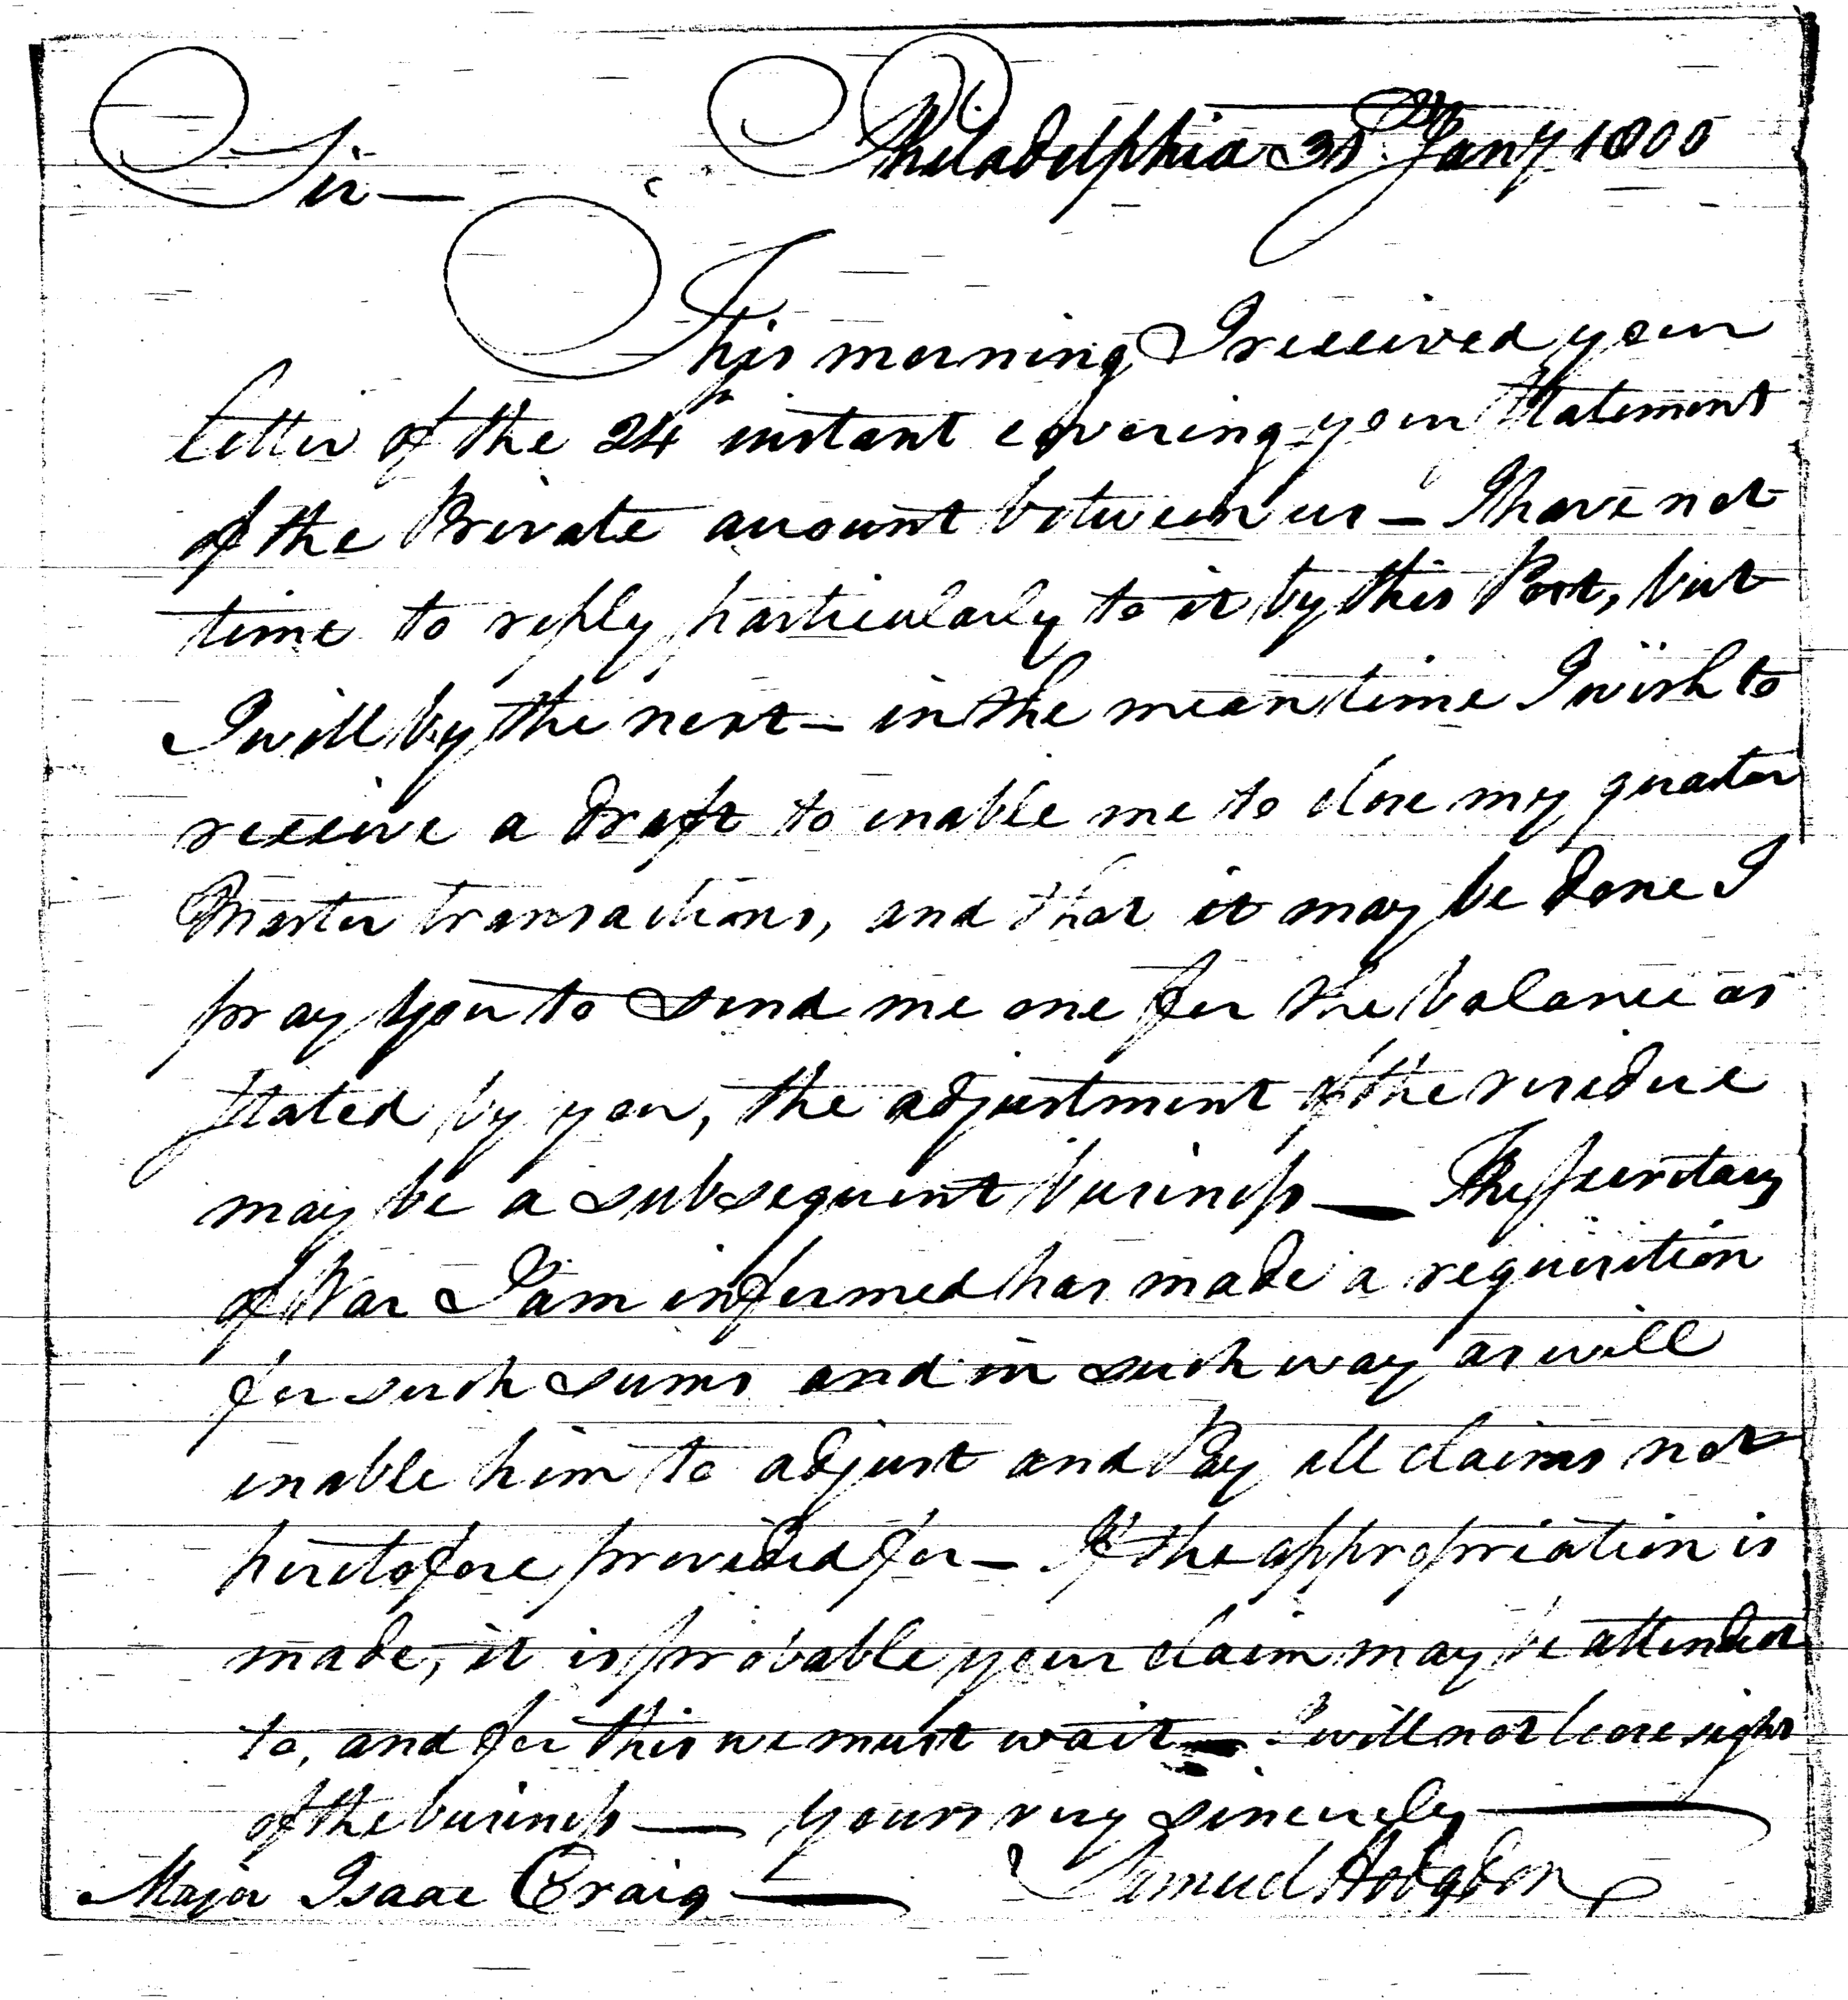 Sir — Philadelphia 31st Jany 1800
This morning I received your
letter of the 24th instant covering your Statement
of the Private account between us — I have not
time to reply particularly to it by this Post, but
I will by the next — in the mean time I wish to
receive a draft to enable me to close my quarter
Master transactions, and that it may be done I
pray you to send me one for the balance as
stated by you, the adjustment of the residue
may be a subsequent business — The Secretary
of War I am informed has made a requisition
for such sums and in such way as will
enable him to adjust and Pay all claims not
heretofore provided for — If the appropriation is
made, it is probable your claim may be attended
to, and for this we must wait — I will not loose sight
of the business — yours very sincerely
Major Isaac Craig — Samuel Hodgdon